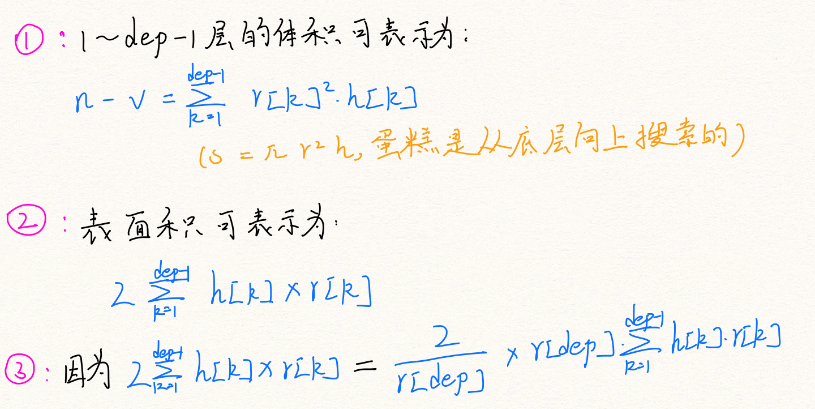 ①：1～dep-1层的体积可表示为：
n - v = \sum_{k=1}^{dep-1} r[k]^2·h[k]
(s = πr²h, 蛋糕是从底层向上搜索的)
②：表面积可表示为：
2 \sum_{k=1}^{dep-1} h[k] × r[k]
③：因为 2\sum_{k=1}^{dep-1} h[k] × r[k] = \frac{2}{r[dep]} × r[dep]·\sum_{k=1}^{dep-1} h[k]·r[k]